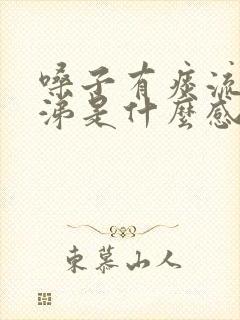 嗓子有痰流
涕是什麼感
東慕山人